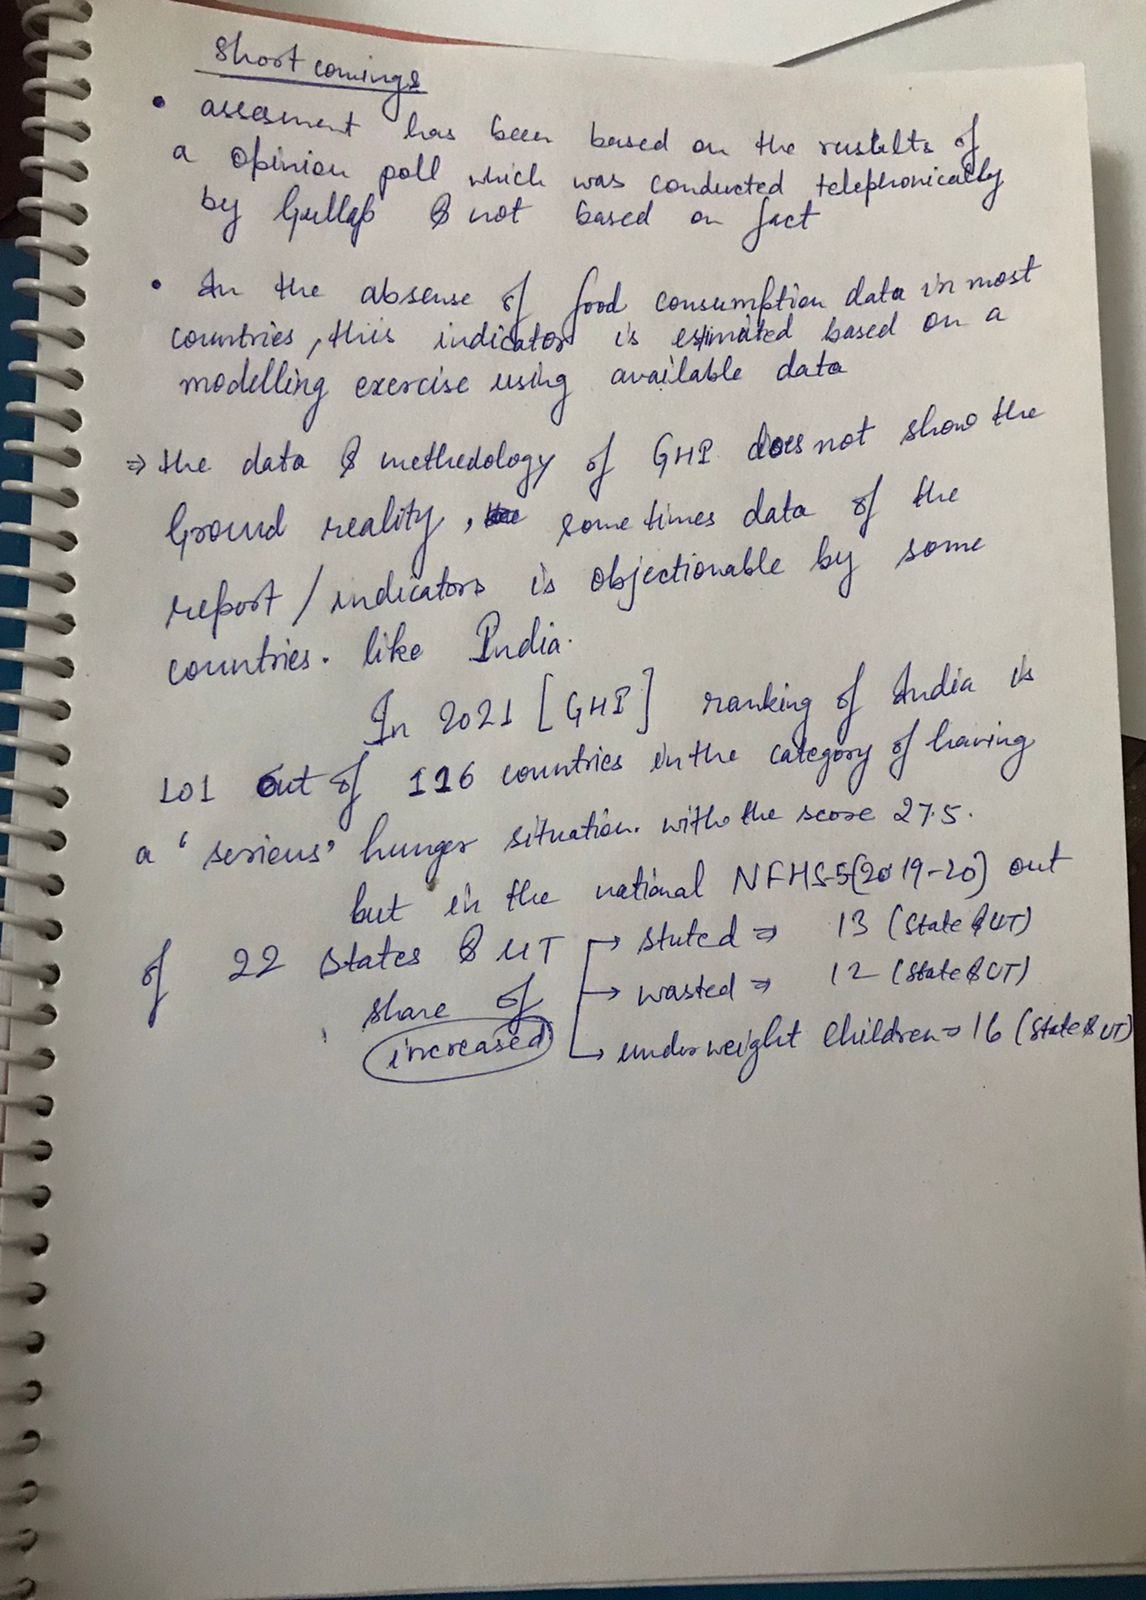 Short comings
• assesment has been based on the results of
a opinion poll which was conducted telephonically
by Gullap & not based on fact
• In the absense of food consumption data in most
countries, this indicator is estimated based on a
modelling exercise using available data
⇒ the data & methedology of GHI does not show the
Ground reality, some times data of the
report / indicators is objectionable by some
countries. like India.
In 2021 [GHI] ranking of India is
101 out of 116 countries in the category of having
a ‘serious’ hunger situation. with the score 27.5.
but in the national NFHS-5(2019-20) out
of 22 states & UT → stuted ⇒ 13 (State & UT)
share of → wasted ⇒ 12 (State & UT)
increased → underweight children ⇒ 16 (State & UT)